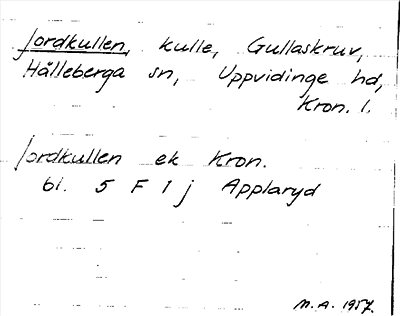 Jordkullen, kulle, Gullaskruv,
Hälleberga sn, Uppvidinge hd,
Kron. l.
Jordkullen ek Kron.
bl. 5 F 1 j Applaryd
M.A. 1957.